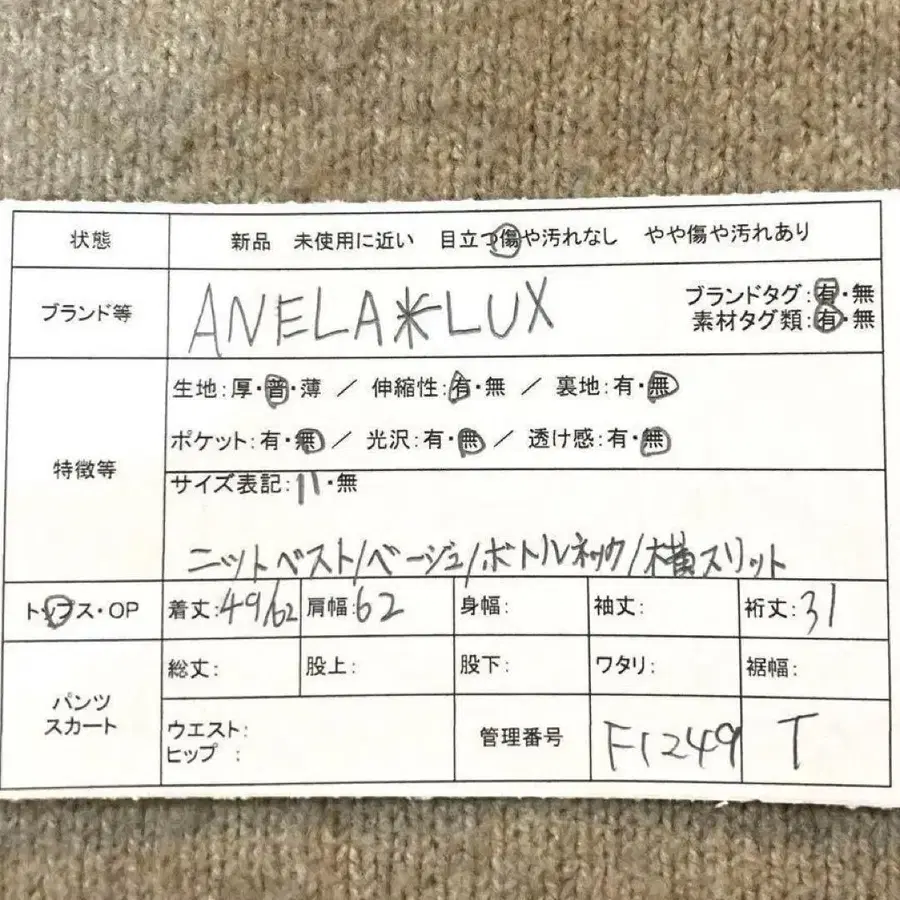 状態 新品 未使用に近い 目立つ傷や汚れなし やや傷や汚れあり
ブランド等 ANELA*LUX ブランドタグ:有・無
素材タグ類:有・無
特徴等 生地:厚・普・薄 / 伸縮性:有・無 / 裏地:有・無
ポケット:有・無 / 光沢:有・無 / 透け感:有・無
サイズ表記:11・無
ニットベスト/ベージュ/ボトルネック/横スリット
トップス・OP 着丈:49/62 肩幅:62 身幅: 袖丈: 裄丈:31
パンツ スカート 総丈: 股上: 股下: ワタリ: 裾幅:
ウエスト:
ヒップ : 管理番号 F1249 T